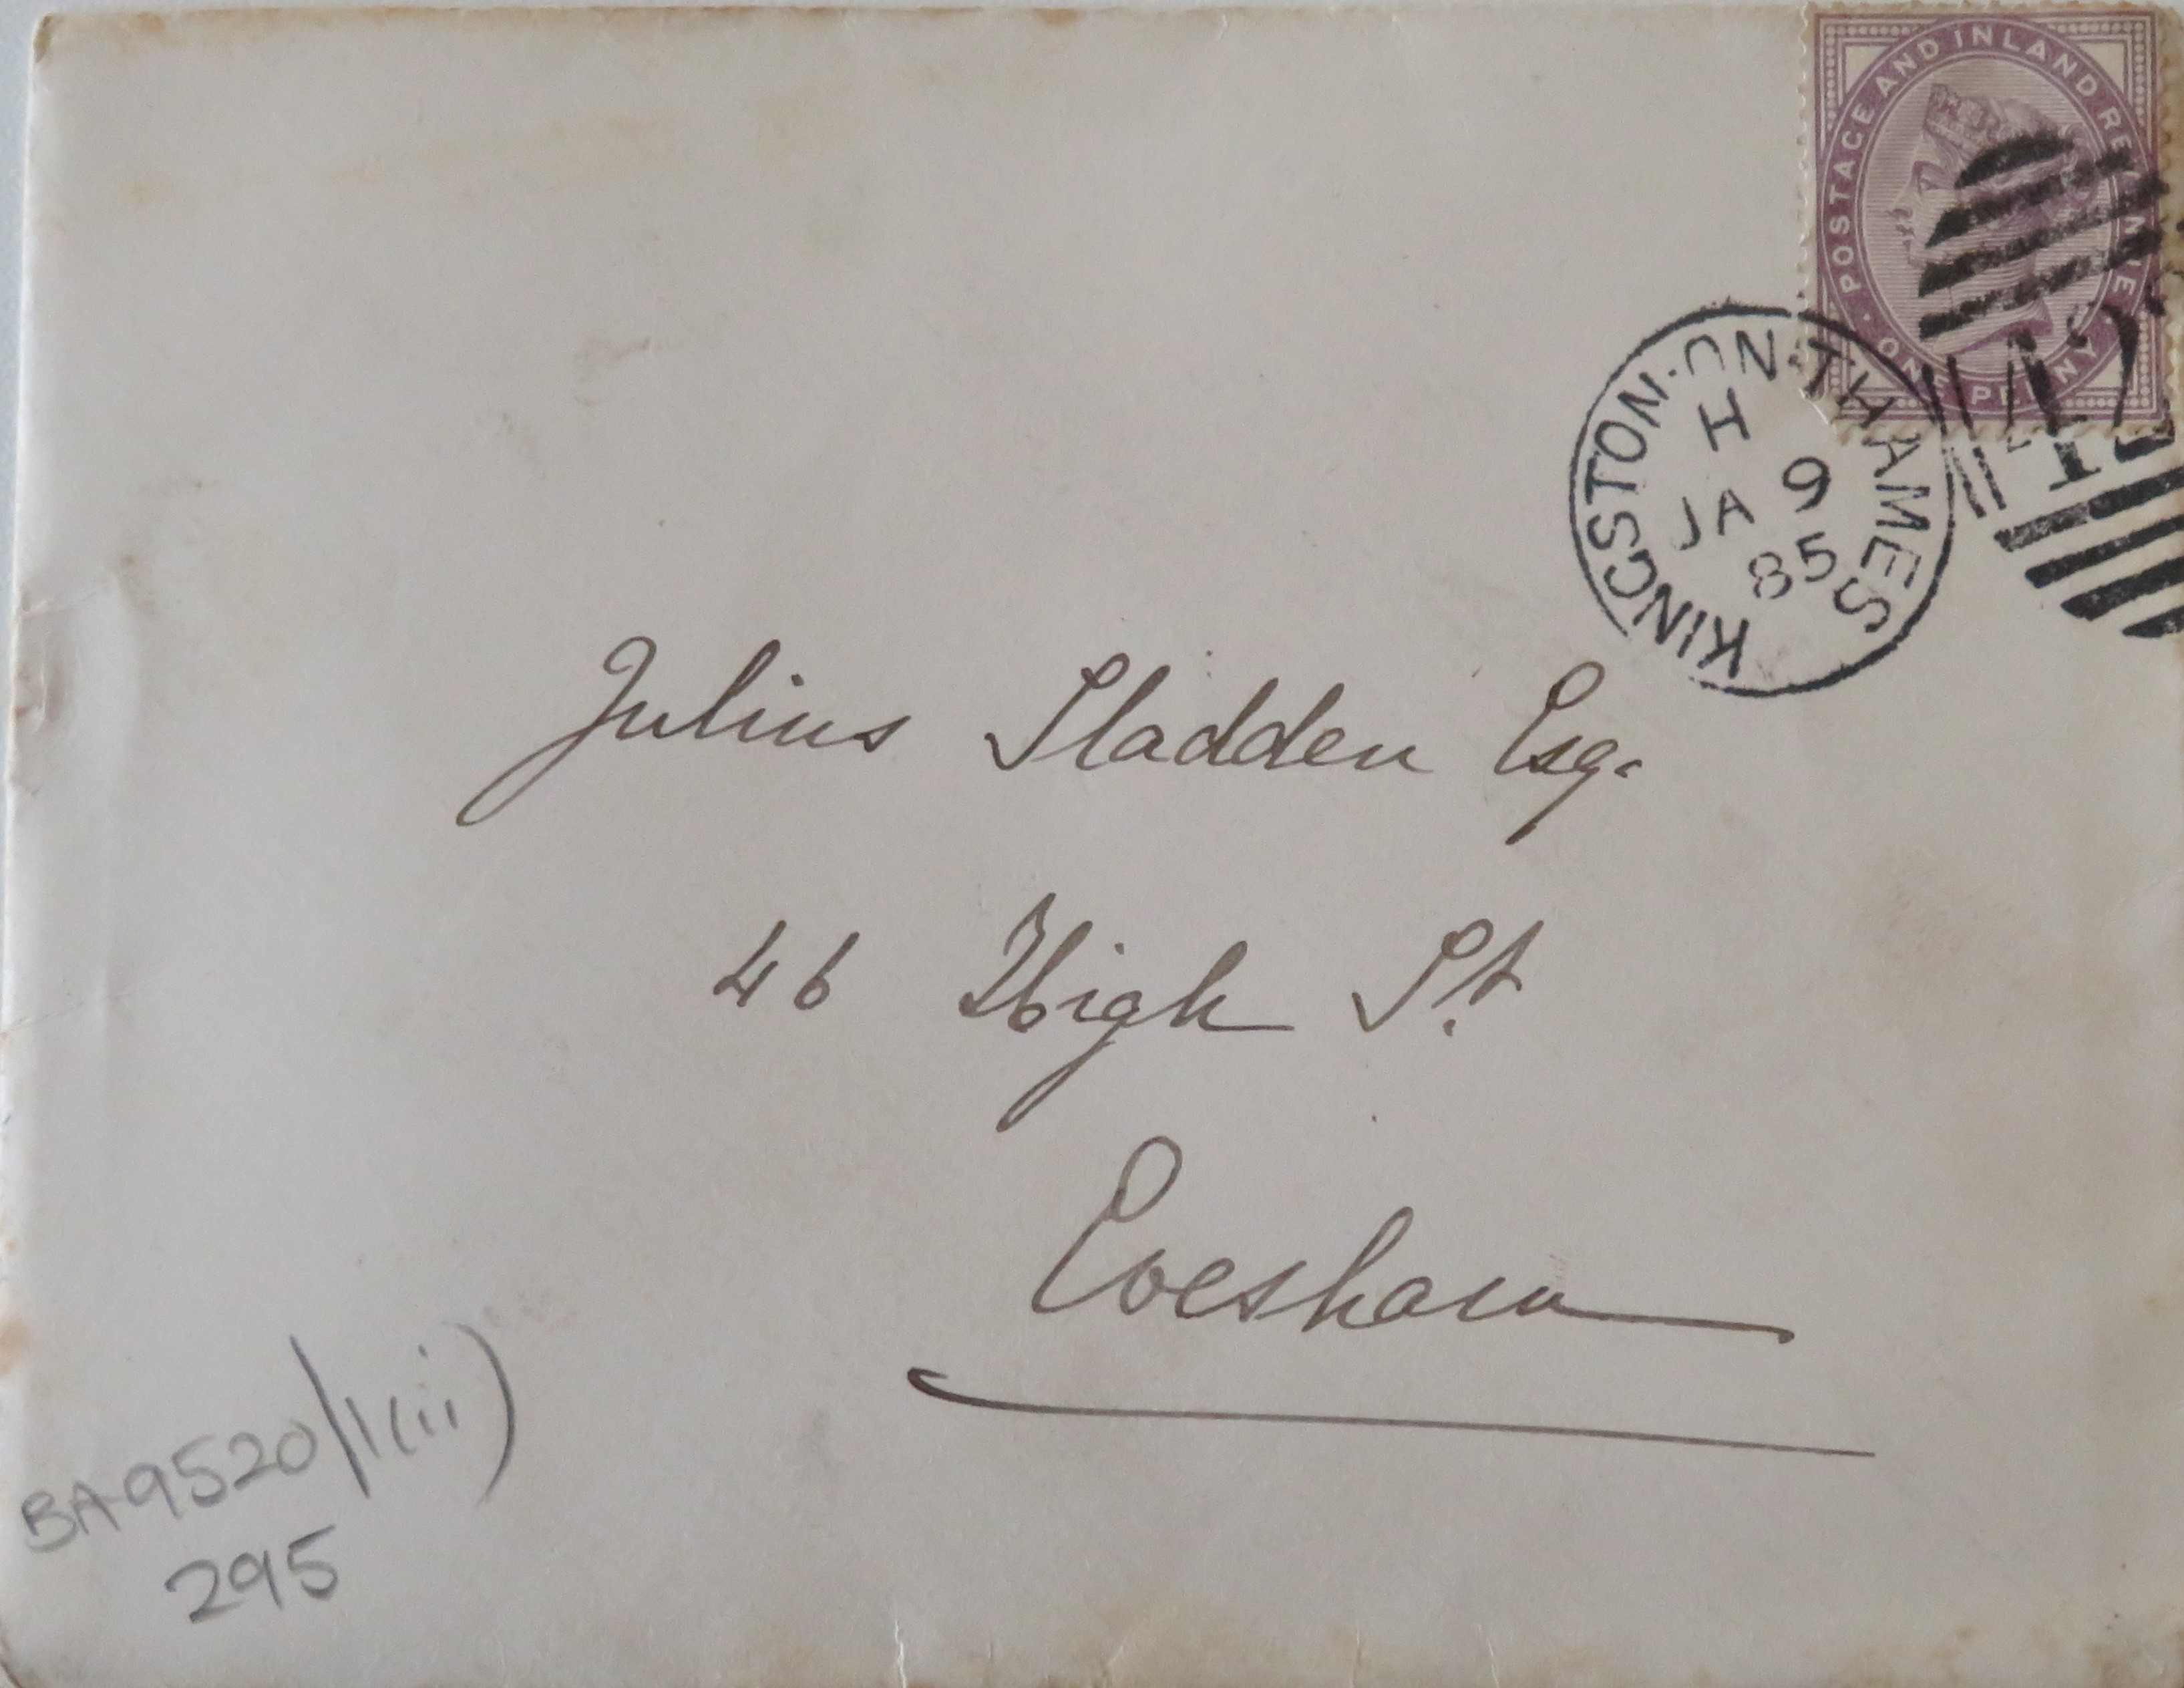 POSTAGE AND INLAND REVENUE
ONE PENNY
KINGSTON·ON·THAMES
H
JA 9
85
Julius Sladden Esq.
46 High St.
Evesham
BA9520/1(ii)
295